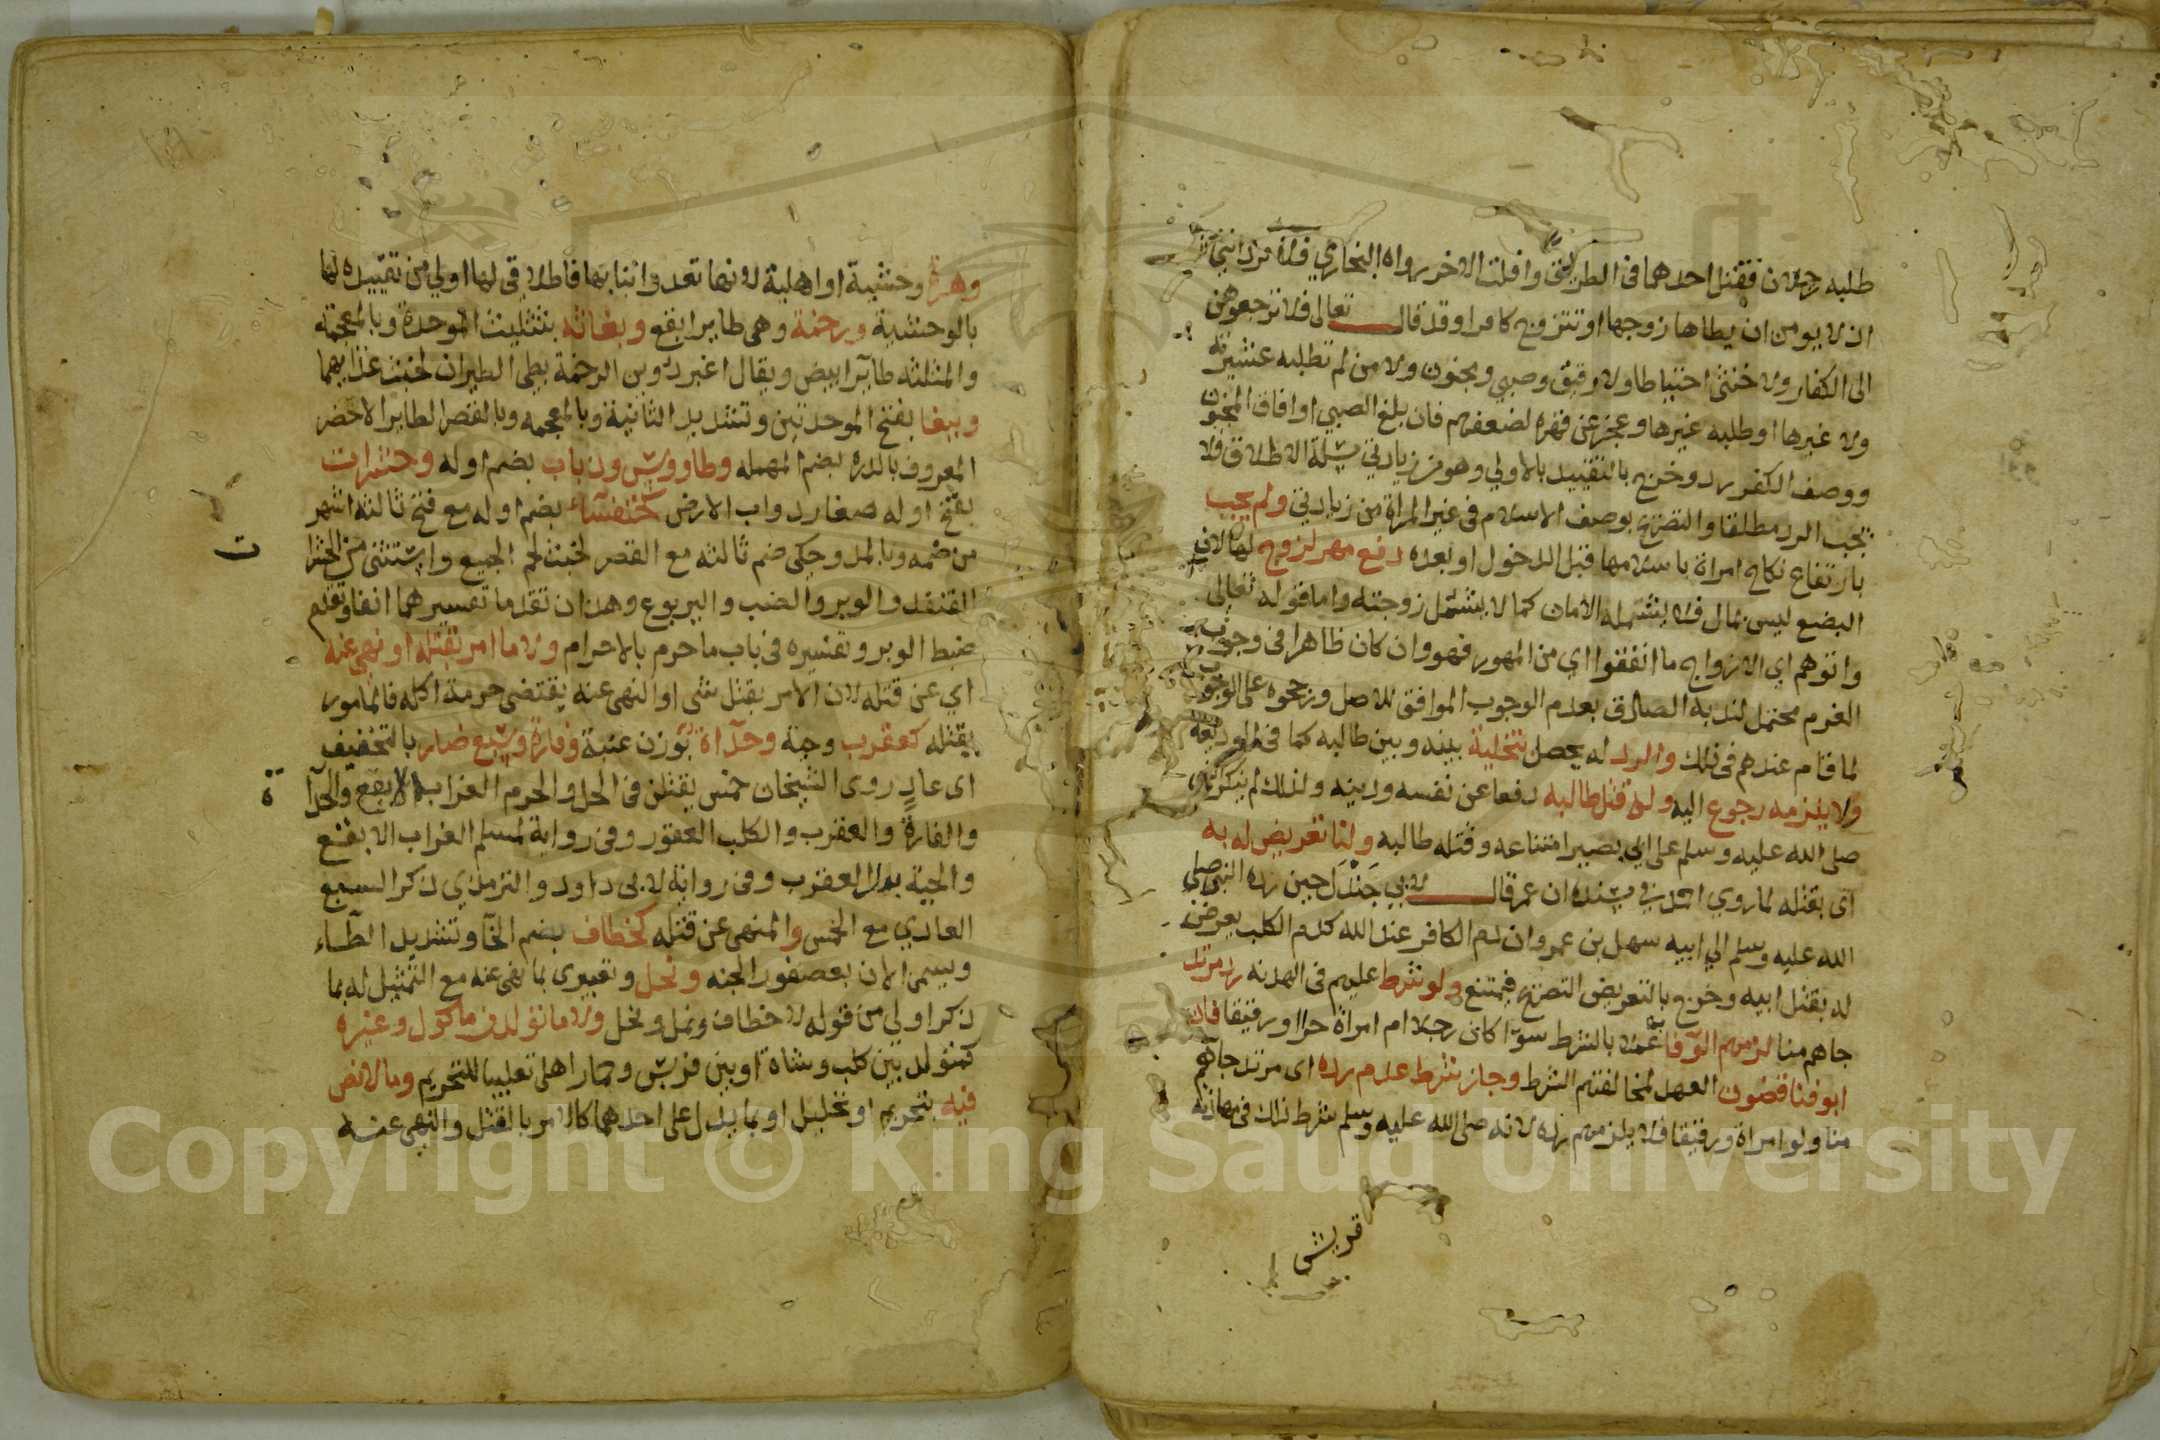 طلبه رجلان فقتل احدهما في الطريق وافلت الاخر رواه البخاري فلا ترد انثى
اذ لا يومن ان يطاها زوجها او تتزوج كافرا وقد قال تعالى فلا ترجعوهن
الى الكفار ولا خنثى احتياطا ولا رقيق وصبي ومجنون ولا من لم تطلبه عشيرته
ولا غيرها او طلبه غيرها وعجز عن قهره لضعفهم فان بلغ الصبي او افاق المجنون
ووصف الكفر رد وخرج بالتقييد بالاولي وهو من زيادتي مسئلة الاطلاق فلا
يجب الرد مطلقا والتصريح بوصف الاسلام في غير المراة من زيادتي ولم يجب
بارتفاع نكاح امراة باسلامها قبل الدخول او بعده دفع مهر لزوج لها لان
البضع ليس بمال فلا يشمله الامان كما لا يشمل زوجته واما قوله تعالى
واتوهم اي الازواج ما انفقوا اي من المهور فهو وان كان ظاهرا في وجوب
الغرم محتمل لندبه الصادق بعدم الوجوب الموافق للاصل ورجحوه على الوجوب
لما قام عندهم في ذلك والرد له يحصل بتخلية بينه وبين طالبه كما في الوديعة
ولا يلزمه رجوع اليه وله قتل طالبه دفعا عن نفسه ودينه ولذلك لم ينكر النبي
صلى الله عليه وسلم على ابي بصير امتناعه وقتله طالبه ولنا تعريض له به
اي بقتله لما روي احمد في مسنده ان عمر قال لابي جندل حين رده النبي صلى
الله عليه وسلم الي ابيه سهل بن عمرو ان دم الكافر عند الله كدم الكلب يعرض
له بقتل ابيه وخرج بالتعريض التصريح فيمتنع ولو شرط عليهم في الهدنة رد مرتد
جاهم منا لزمهم الوفا به عملا بالشرط سوآ اكان رجلا ام امراة حرا او رقيقا فان
ابو فناقضون العهد لمخالفتهم الشرط وجاز شرط عدم رده اي مرتد جاهم
منا ولو امراة ورقيقا فلا يلزمهم رده لانه صلى الله عليه وسلم شرط ذلك في مهادنة
قريش
وهرة وحشية او اهلية لانها تعدوا بنابها فاطلاقي لها اولي من تقييده لها
بالوحشية ورخمة وهي طاير ابقع وبغاثه بتثليث الموحدة وبالمعجمة
والمثلثه طاير ابيض ويقال اغبر دوين الرخمة بطي الطيران لخبث غذايهما
وببغا بفتح الموحدتين وتشديد الثانية وبالمعجمه وبالقصر الطاير الاخضر
المعروف بالدره بضم المهمله وطاووس وذباب بضم اوله وحشرات
بفتح اوله صغار دواب الارض كخنفساء بضم اوله مع فتح ثالثه اشهر
من ضمه وبالمد وحكي ضم ثالثه مع القصر لخبث لحم الجميع واستثني من الحشرا
ت
القنفد والوبر والضب واليربوع وهذان تقدما تفسيرهما انفا وتقدم
ضبط الوبر وتفسيره في باب ما حرم بالاحرام ولا ما امر بقتله او نهي عنه
اي عن قتله لان الامر بقتل شي او النهي عنه يقتضي حرمة اكله فالمامور
بقتله كعقرب وحية وحدآة بوزن عنبة وفارة وسبع ضار بالتخفيف
اي عاد روى الشيخان خمس يقتلن في الحل والحرم الغراب الابقع والحدا
ة
والفارة والعقرب والكلب العقور وفي رواية لمسلم الغراب الابقع
والحية بدل العقرب وفي رواية لابي داود والترمذي ذكر السبع
العادي مع الخمس والمنهي عن قتله كخطاف بضم الخآ وتشديد الطآء
ويسمي الان بعصفور الجنه ونحل وتعبيري بما نهي عنه مع التمثيل له بما
ذكر اولي من قوله لا خطاف ونمل ونحل ولا ما تولد من ماكول وغيره
كمتولد بين كلب وشاة او بين فرس وحمار اهلي تغليبا للتحريم وما لا نص
فيه بتحريم او تحليل او بما يدل على احدهما كالامر بالقتل والنهي عنه
Copyright © King Saud University